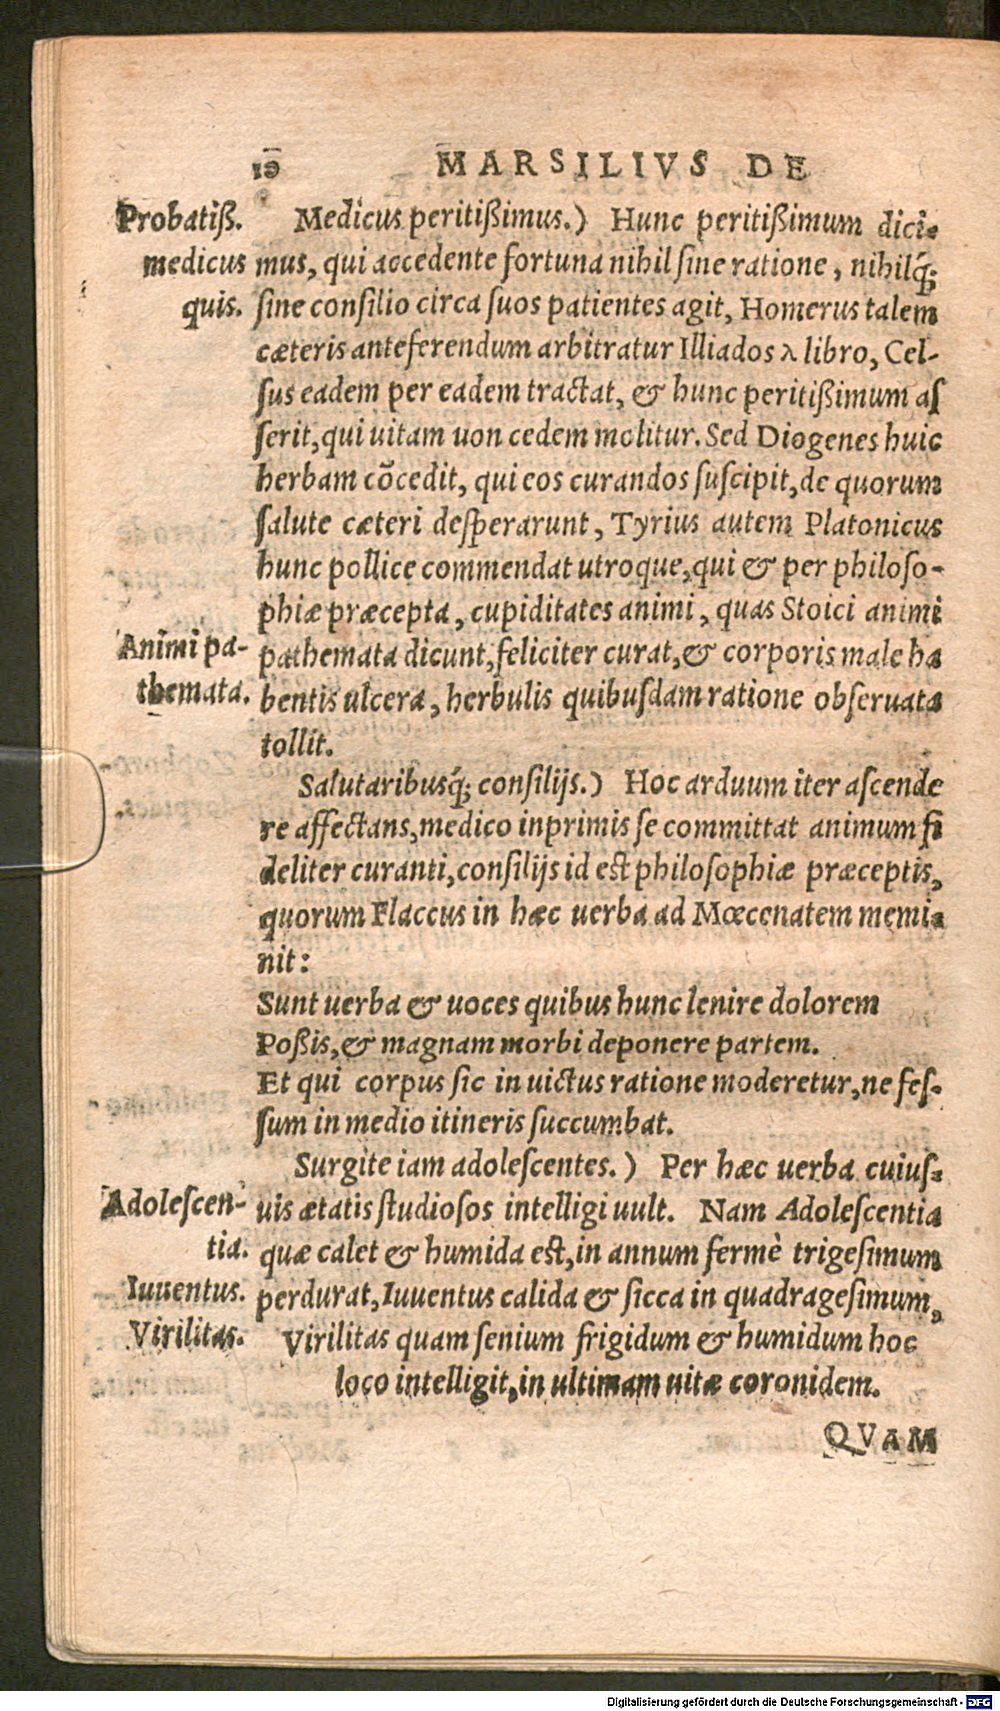 10 MARSILIVS DE
Probatiß. Medicus peritißimus.) Hunc peritißimum dici-
medicus mus, qui accedente fortuna nihil sine ratione, nihilq́;
quis. sine consilio circa suos patientes agit, Homerus talem
cæteris anteferendum arbitratur Illiados λ libro, Cel-
sus eadem per eadem tractat, & hunc peritißimum as
serit, qui uitam uon cedem molitur. Sed Diogenes huic
herbam cõcedit, qui eos curandos suscipit, de quorum
salute cæteri desperarunt, Tyrius autem Platonicus
hunc pollice commendat utroque, qui & per philoso-
phiæ præcepta, cupiditates animi, quas Stoici animi
Animi pa- pathemata dicunt, feliciter curat, & corporis male ha
themata. bentis ulcera, herbulis quibusdam ratione obseruata
tollit.
Salutaribusq́; consilijs.) Hoc arduum iter ascende
re affectans, medico inprimis se committat animum fi
deliter curanti, consilijs id est philosophiæ præceptis,
quorum Flaccus in hæc uerba ad Mœcenatem memi-
nit:
Sunt uerba & uoces quibus hunc lenire dolorem
Poßis, & magnam morbi deponere partem.
Et qui corpus sic in uictus ratione moderetur, ne fes-
sum in medio itineris succumbat.
Surgite iam adolescentes.) Per hæc uerba cuius-
Adolescen- uis ætatis studiosos intelligi uult. Nam Adolescentia
tia. quæ calet & humida est, in annum fermè trigesimum
Iuuentus. perdurat, Iuuentus calida & sicca in quadragesimum,
Virilitas. Virilitas quam senium frigidum & humidum hoc
loco intelligit, in ultimam uitæ coronidem.
QVAM
Digitalisierung gefördert durch die Deutsche Forschungsgemeinschaft - DFG